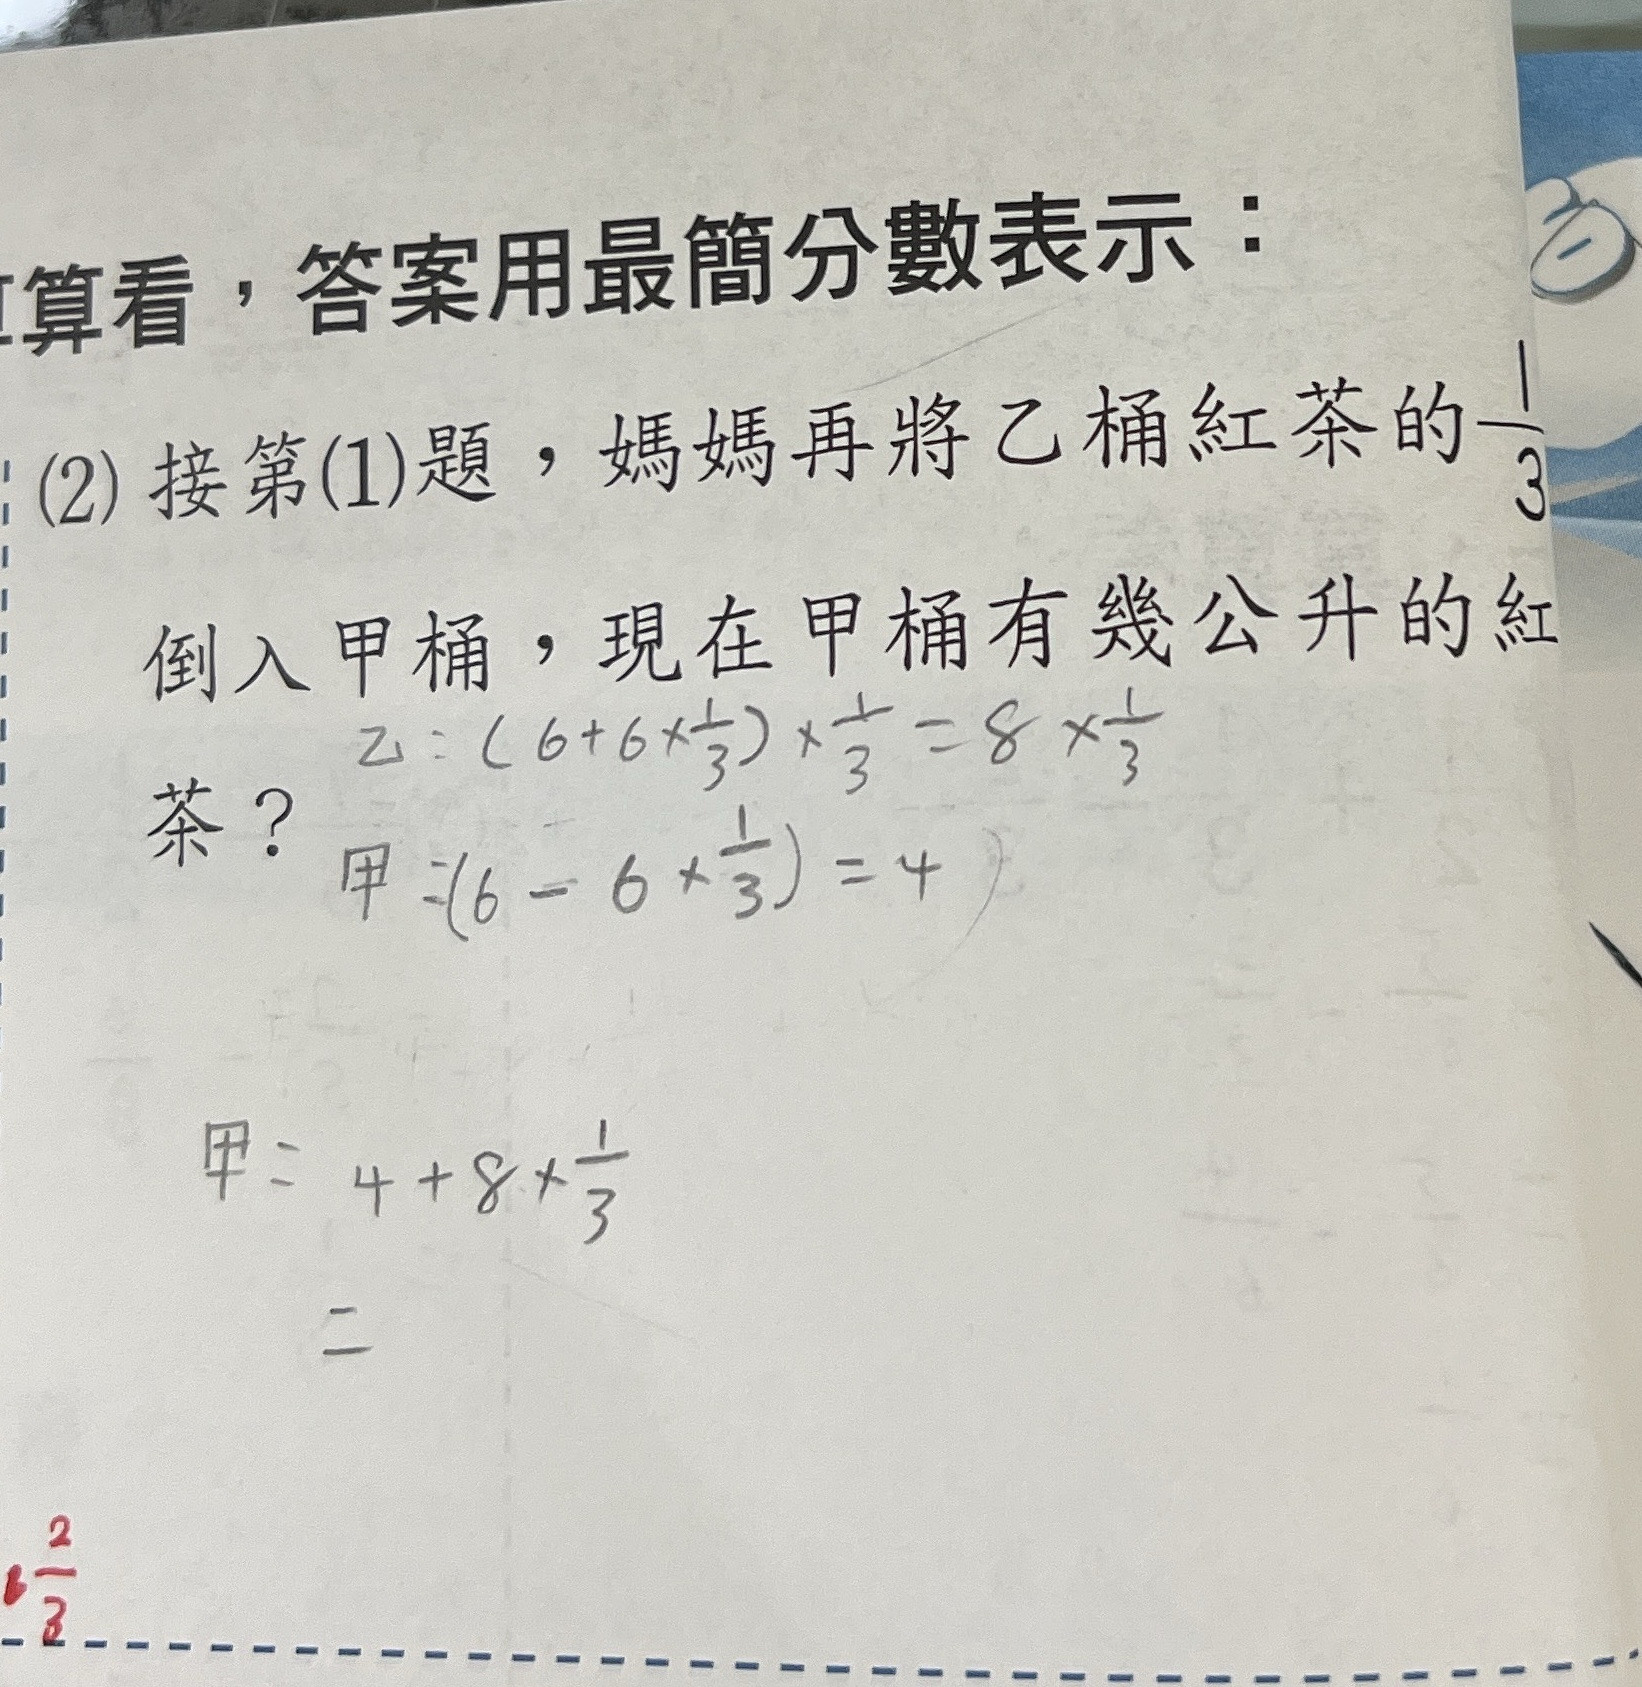 算看，答案用最簡分數表示：
(2) 接第(1)題，媽媽再將乙桶紅茶的1/3
倒入甲桶，現在甲桶有幾公升的紅
茶？
乙：(6+6×1/3)×1/3=8×1/3
甲：(6-6×1/3)=4
甲= 4+8×1/3
=
2/3